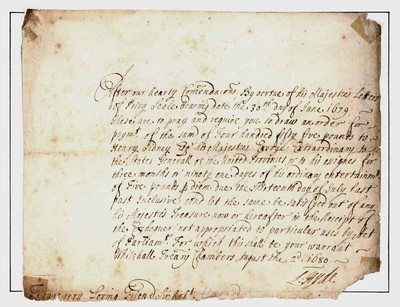 After our hearty Comendacons By vertue of his Majesties Letters
of Privy Seale bearing date the 30th day of June 1679
These are to pray and require you to draw an order for
paymt. of the sum of Four hundred fifty five pounds to
Henry Sidney Esqr. his Majesties Envoye Extraordinary to
the States Generall of the United Provinces or to his assignes for
three months or ninety one dayes of his ordinary entertainmt.
of Five pounds p diem due the thirteenth day of July last
past Inclusive And let the same be satisfyed out of any
his Majesties Treasure now or hereafter in the Receipt of
the Exchequer not appropriated to particular uses by Act
of Parliamt. For which this shall be your warrant
Whitehall Treasry Chambers, August the 2d. 1680
L Hyde